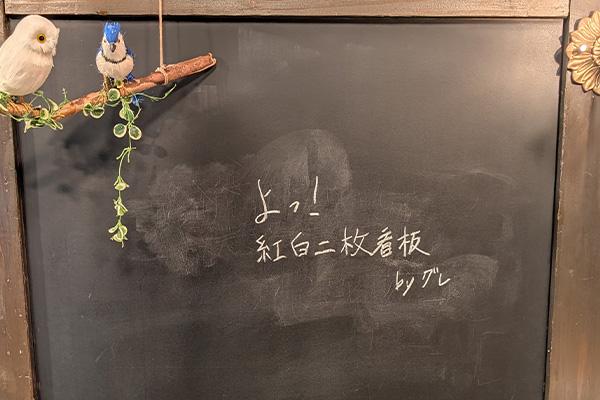 よっ!
紅白二枚看板
by グレ